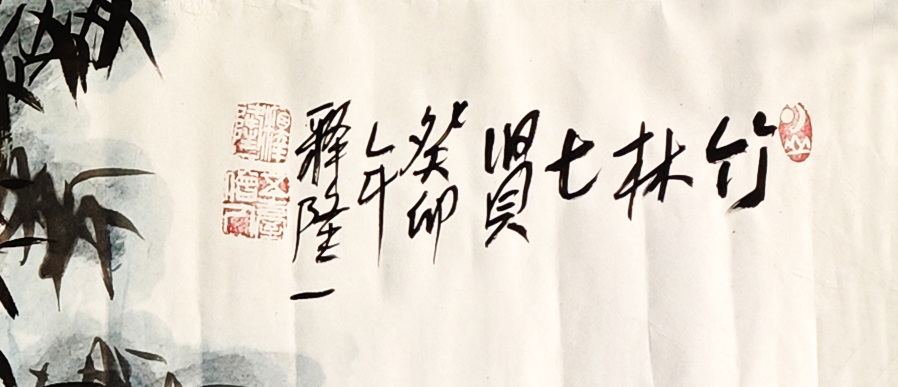 竹林七贤
癸卯
年
释隆一